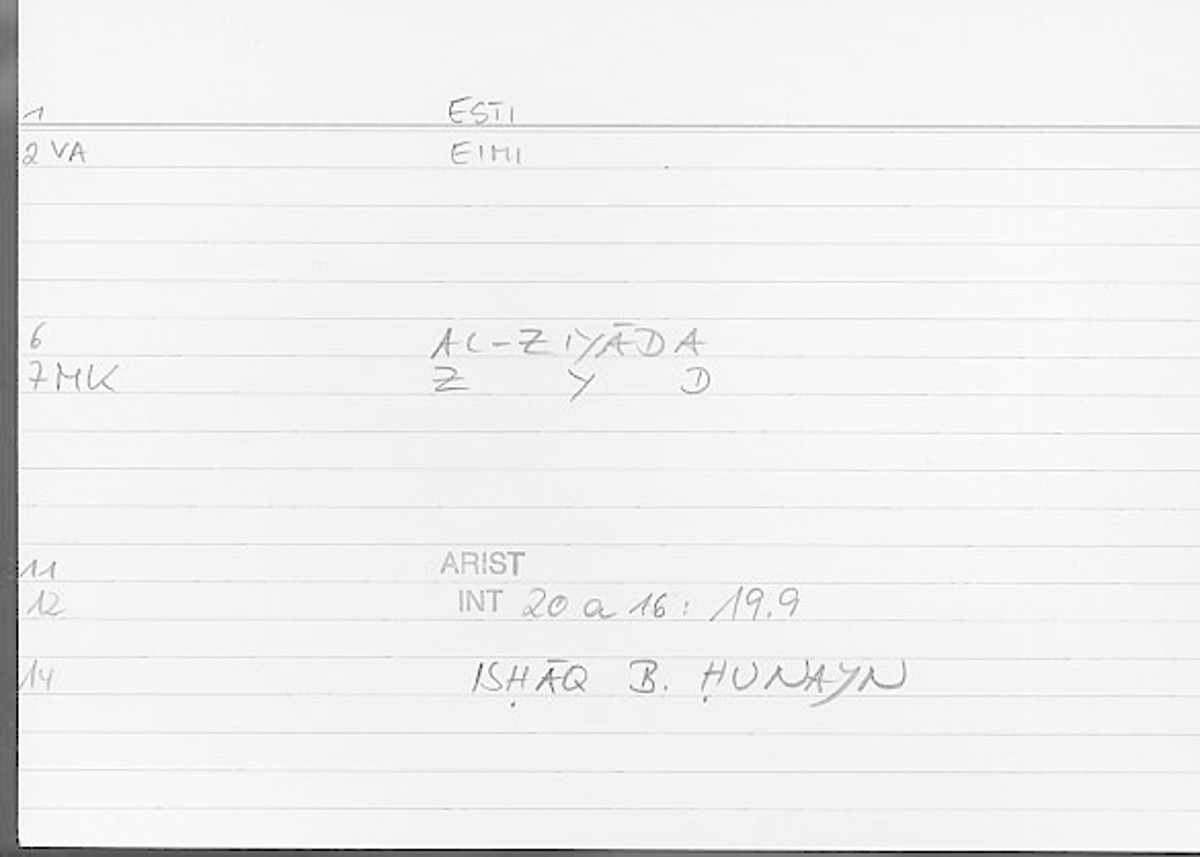 1 ESTI
2 VA EIMI
6 AL-ZIYĀDA
7 MK Z Y D
11 ARIST
12 INT 20 a 16: 19.9
14 ISḤĀQ B. ḤUNAYN